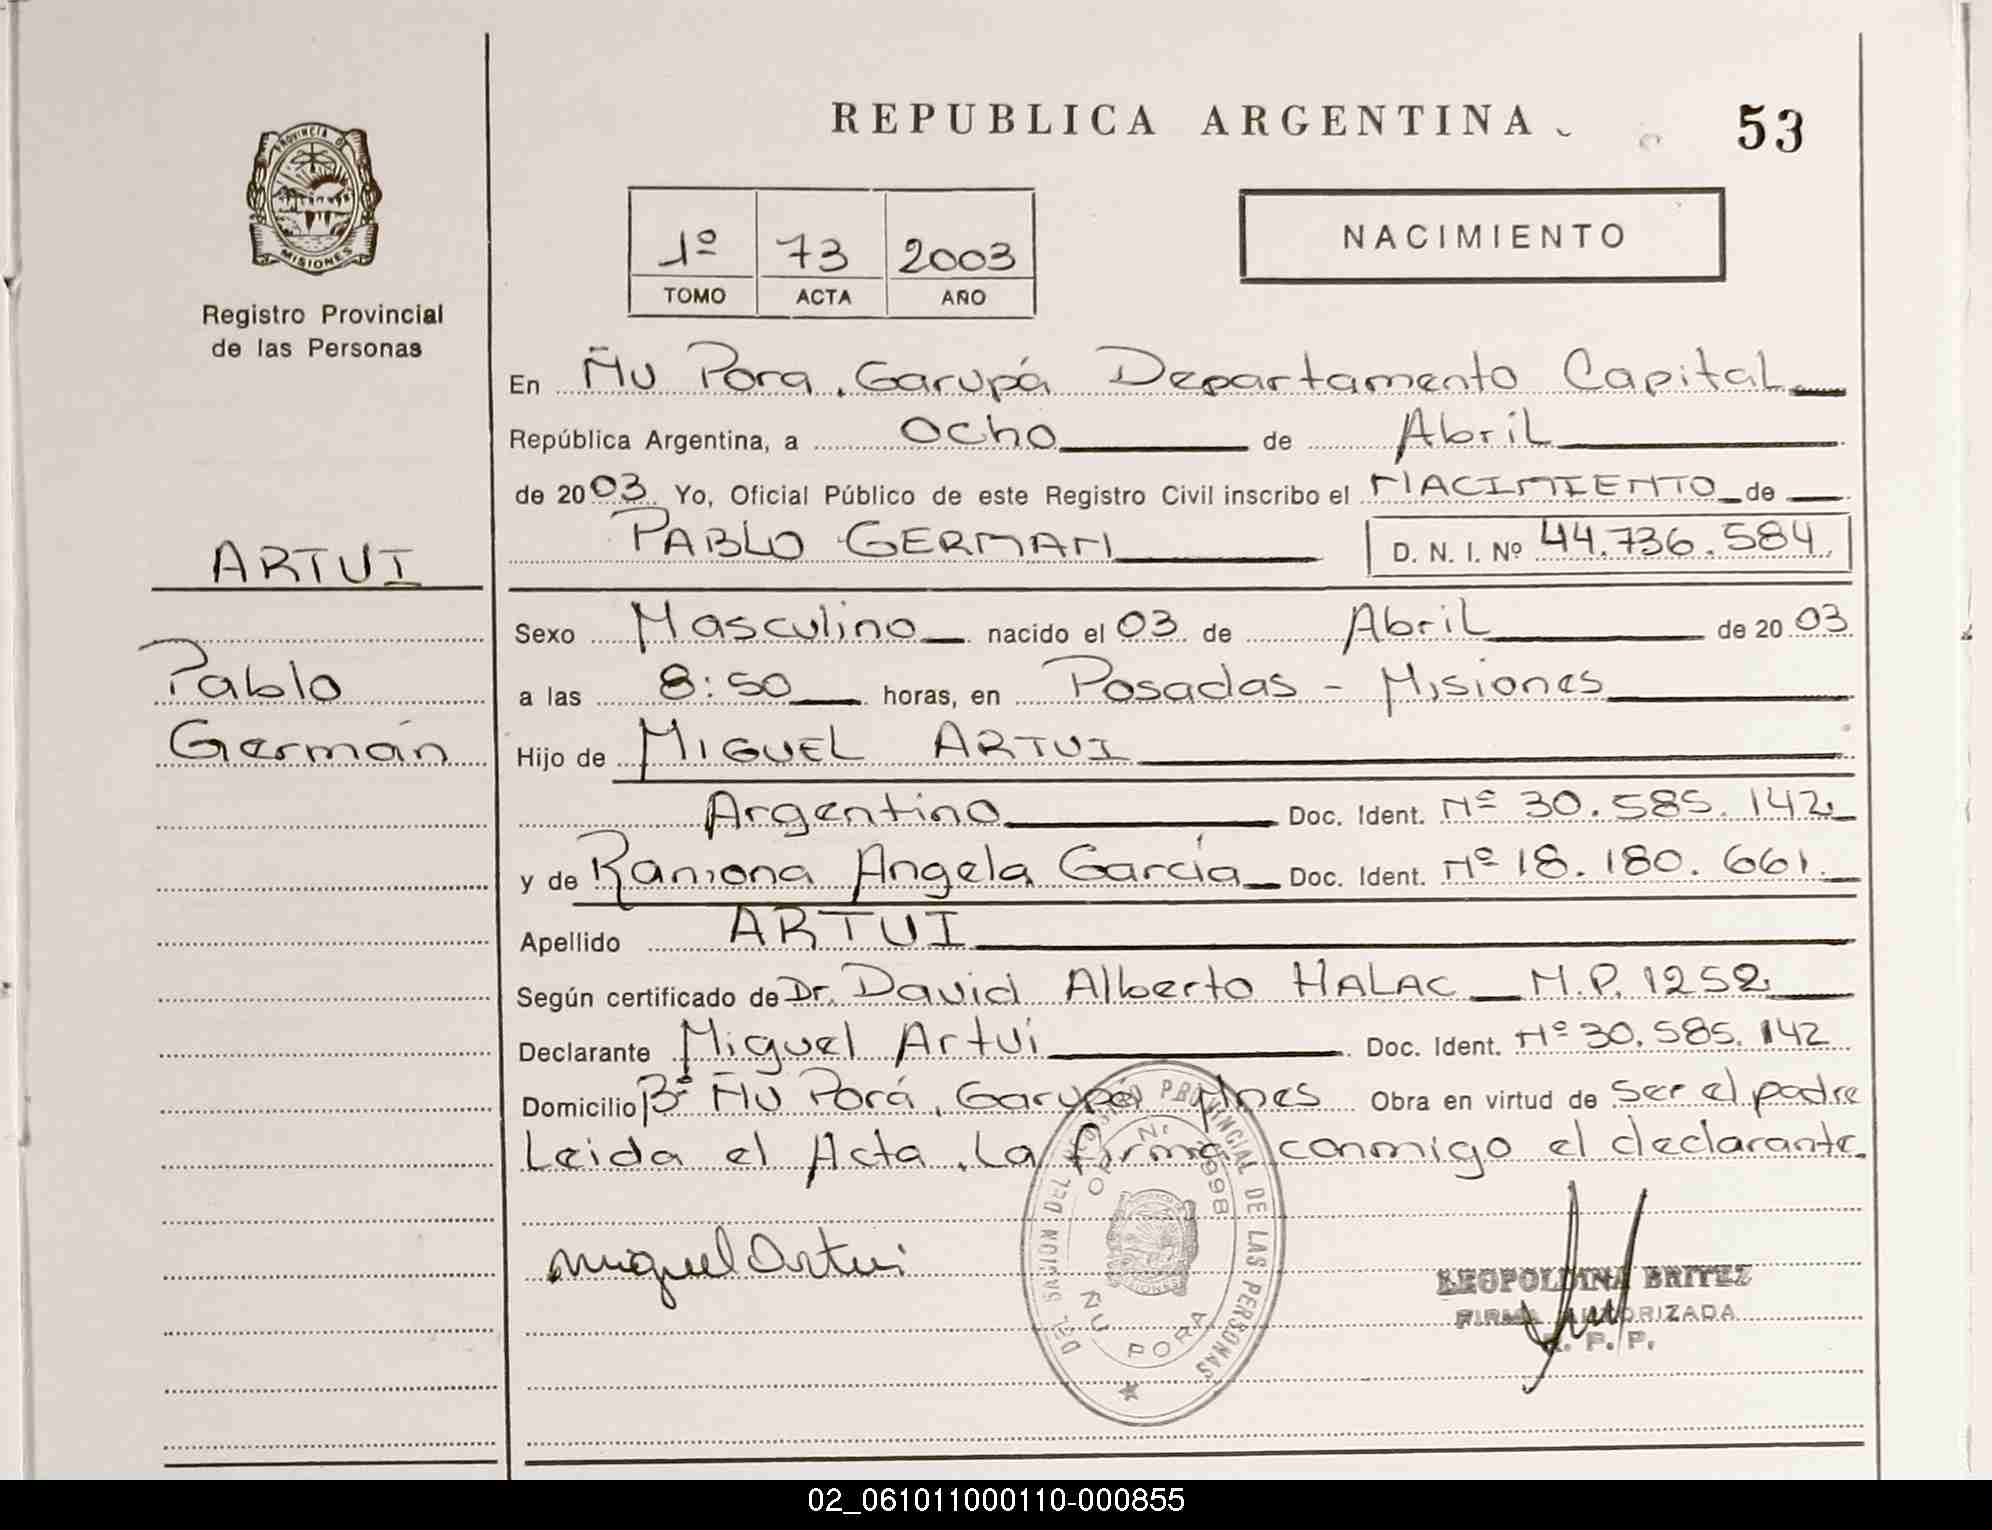 REPUBLICA ARGENTINA
53
PROVINCIA DE
MISIONES
Registro Provincial
de las Personas
1º 73 2003
TOMO ACTA AÑO
NACIMIENTO
En Ñu Pora, Garupá Departamento Capital
República Argentina, a Ocho de Abril
de 2003 Yo, Oficial Público de este Registro Civil inscribo el NACIMIENTO de
PABLO GERMAN D. N. I. Nº 44.736.584
ARTUI
Pablo
Germán
Sexo Masculino nacido el 03 de Abril de 2003
a las 8:50 horas, en Posadas - Misiones
Hijo de MIGUEL ARTUI
Argentino Doc. Ident. Nº 30.585.142
y de Ramona Angela García Doc. Ident. Nº 18.180.661
Apellido ARTUI
Según certificado de Dr. David Alberto HALAC M.P. 1252
Declarante Miguel Artui Doc. Ident. Nº 30.585.142
Domicilio Bº Ñu Porá, Garupá Mnes Obra en virtud de ser el padre
Leida el Acta, La firma conmigo el declarante.
Miguel Artui
PROVINCIAL DE LAS PERSONAS
ÑU PORA
LEOPOLDINA BRITEZ
FIRMA AUTORIZADA
R. P. P.
02_061011000110-000855